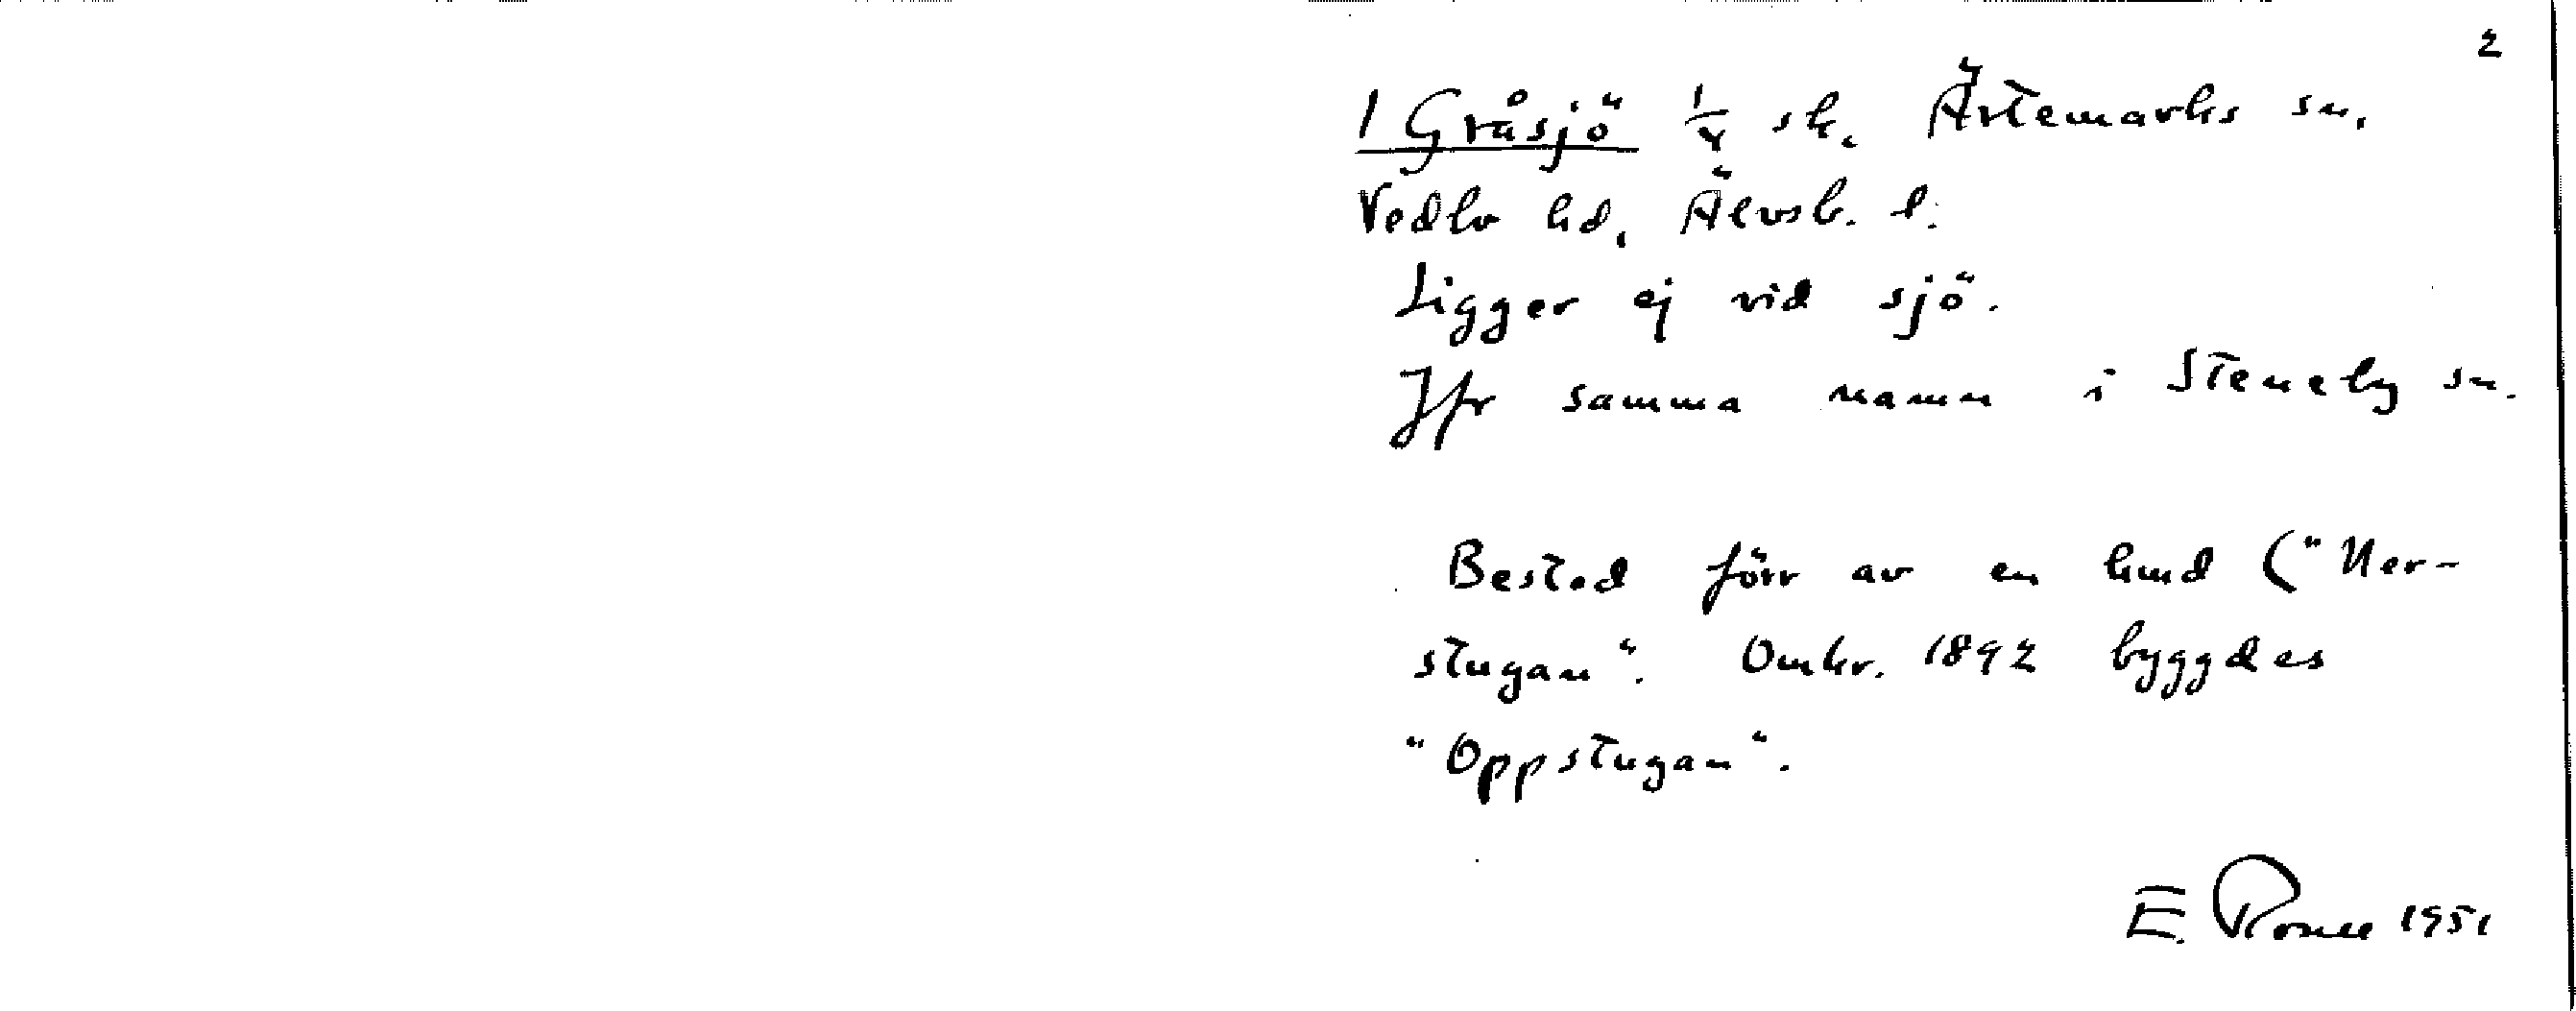 2
1 Gråsjö 1/4 sk. Ärtemarks sn.
Vedbo hd, Älvsb. l.
Ligger ej vid sjö.
Jfr samma namn i Steneby sn.
Bestod förr av en hmd ("Ner-
stugan". Omkr. 1892 byggdes
"Oppstugan".
E. 1951